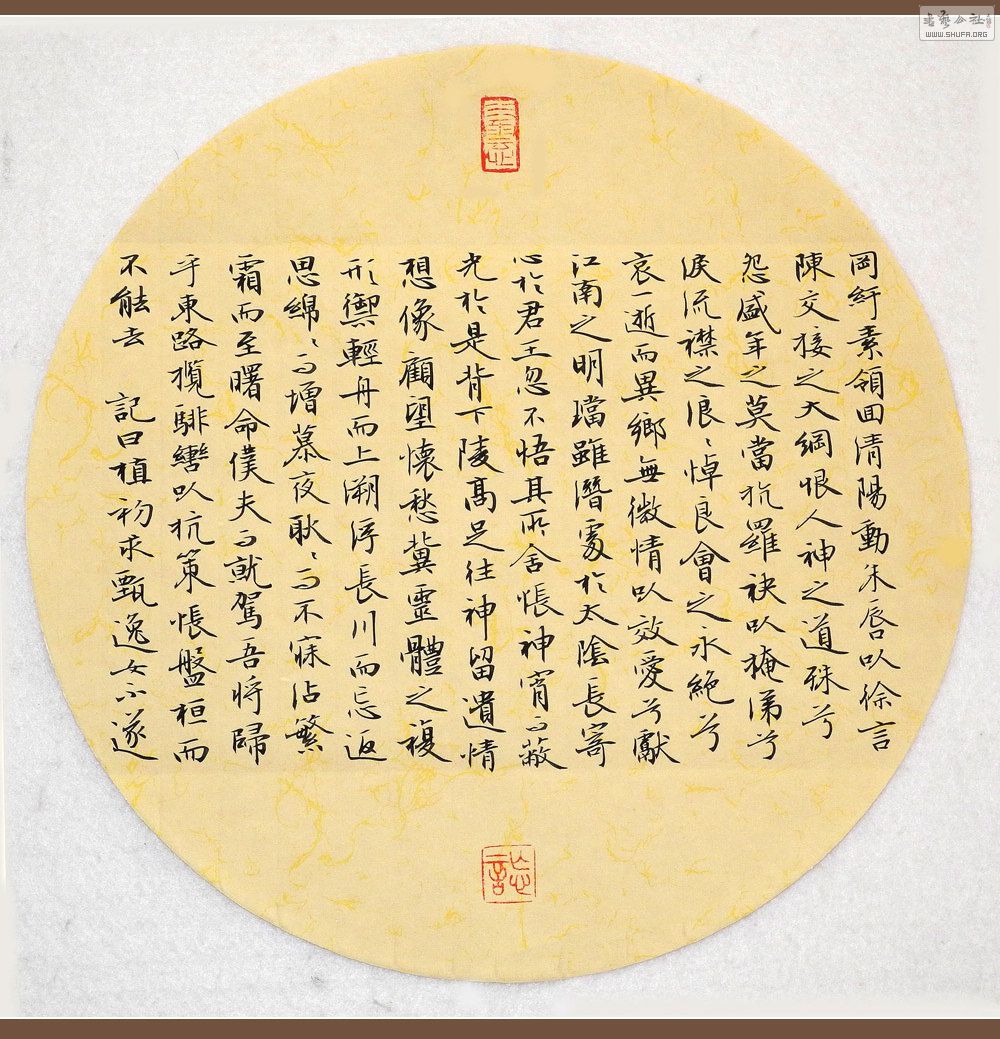 岡紆素領回清陽動朱唇以徐言
陳交接之大綱恨人神之道殊兮
怨盛年之莫當抗羅袂以掩涕兮
淚流襟之浪〻悼良會之永絕兮
哀一逝而異鄉無微情以效愛兮獻
江南之明璫雖潛處於太陰長寄
心於君王忽不悟其所舍悵神宵而蔽
光於是背下陵高足往神留遺情
想像顧望懷愁冀靈體之複
形禦輕舟而上溯浮長川而忘返
思綿〻而增慕夜耿〻而不寐沾繁
霜而至曙命僕夫而就駕吾將歸
乎東路攬騑轡以抗策悵盤桓而
不能去 記曰植初求甄逸女不遂
WWW.SHUFA.ORG